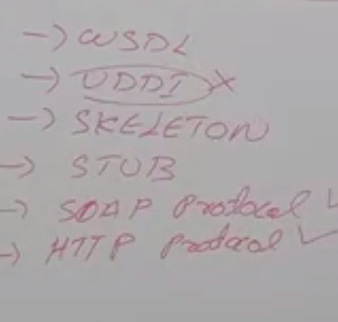 → WSDL
→ UDDI ×
→ SKELETON
→ STUB
→ SOAP Protocol ✓
→ HTTP Protocol ✓